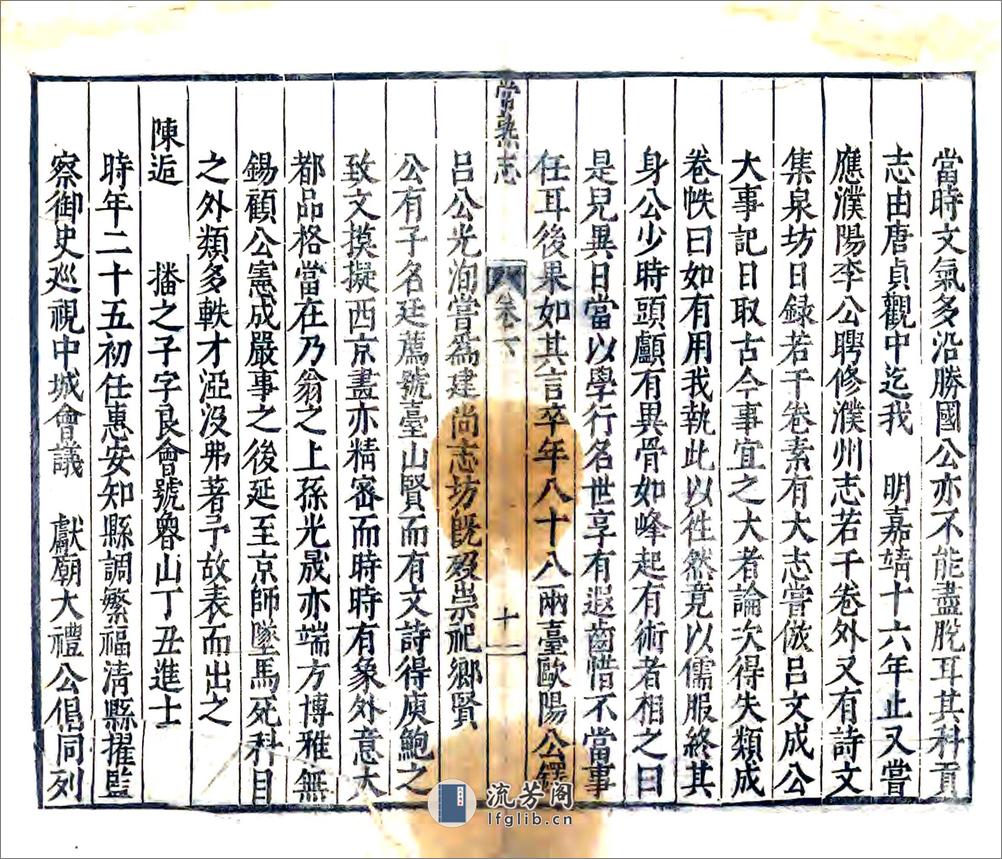 當時文氣多沿勝國公亦不能盡脫耳其科貢
志由唐貞觀中迄我　明嘉靖十六年止又嘗
應濮陽李公聘修濮州志若干卷外又有詩文
集泉坊日録若干卷素有大志嘗倣呂文成公
大事記日取古今事宜之大者論次得失類成
卷帙曰如有用我執此以徃然竟以儒服終其
身公少時頭顱有異骨如峰起有術者相之曰
是兒異日當以學行名世享有遐齒惜不當事
任耳後果如其言卒年八十八兩臺歐陽公鐸
常熟志
卷
十一
呂公光洵嘗爲建尚志坊旣歿崇祀鄉賢
公有子名廷薦號臺山賢而有文詩得庾鮑之
致文摸擬西京畫亦精審而時時有象外意大
都品格當在乃翁之上孫光晟亦端方博雅無
錫顧公憲成嚴事之後延至京師墜馬死科目
之外類多軼才湮没弗著予故表而出之
陳逅　播之子字良會號魯山丁丑進士
時年二十五初任惠安知縣調繁福清縣擢監
察御史巡視中城會議　獻廟大禮公倡同列
流芳阁
lfglib.cn